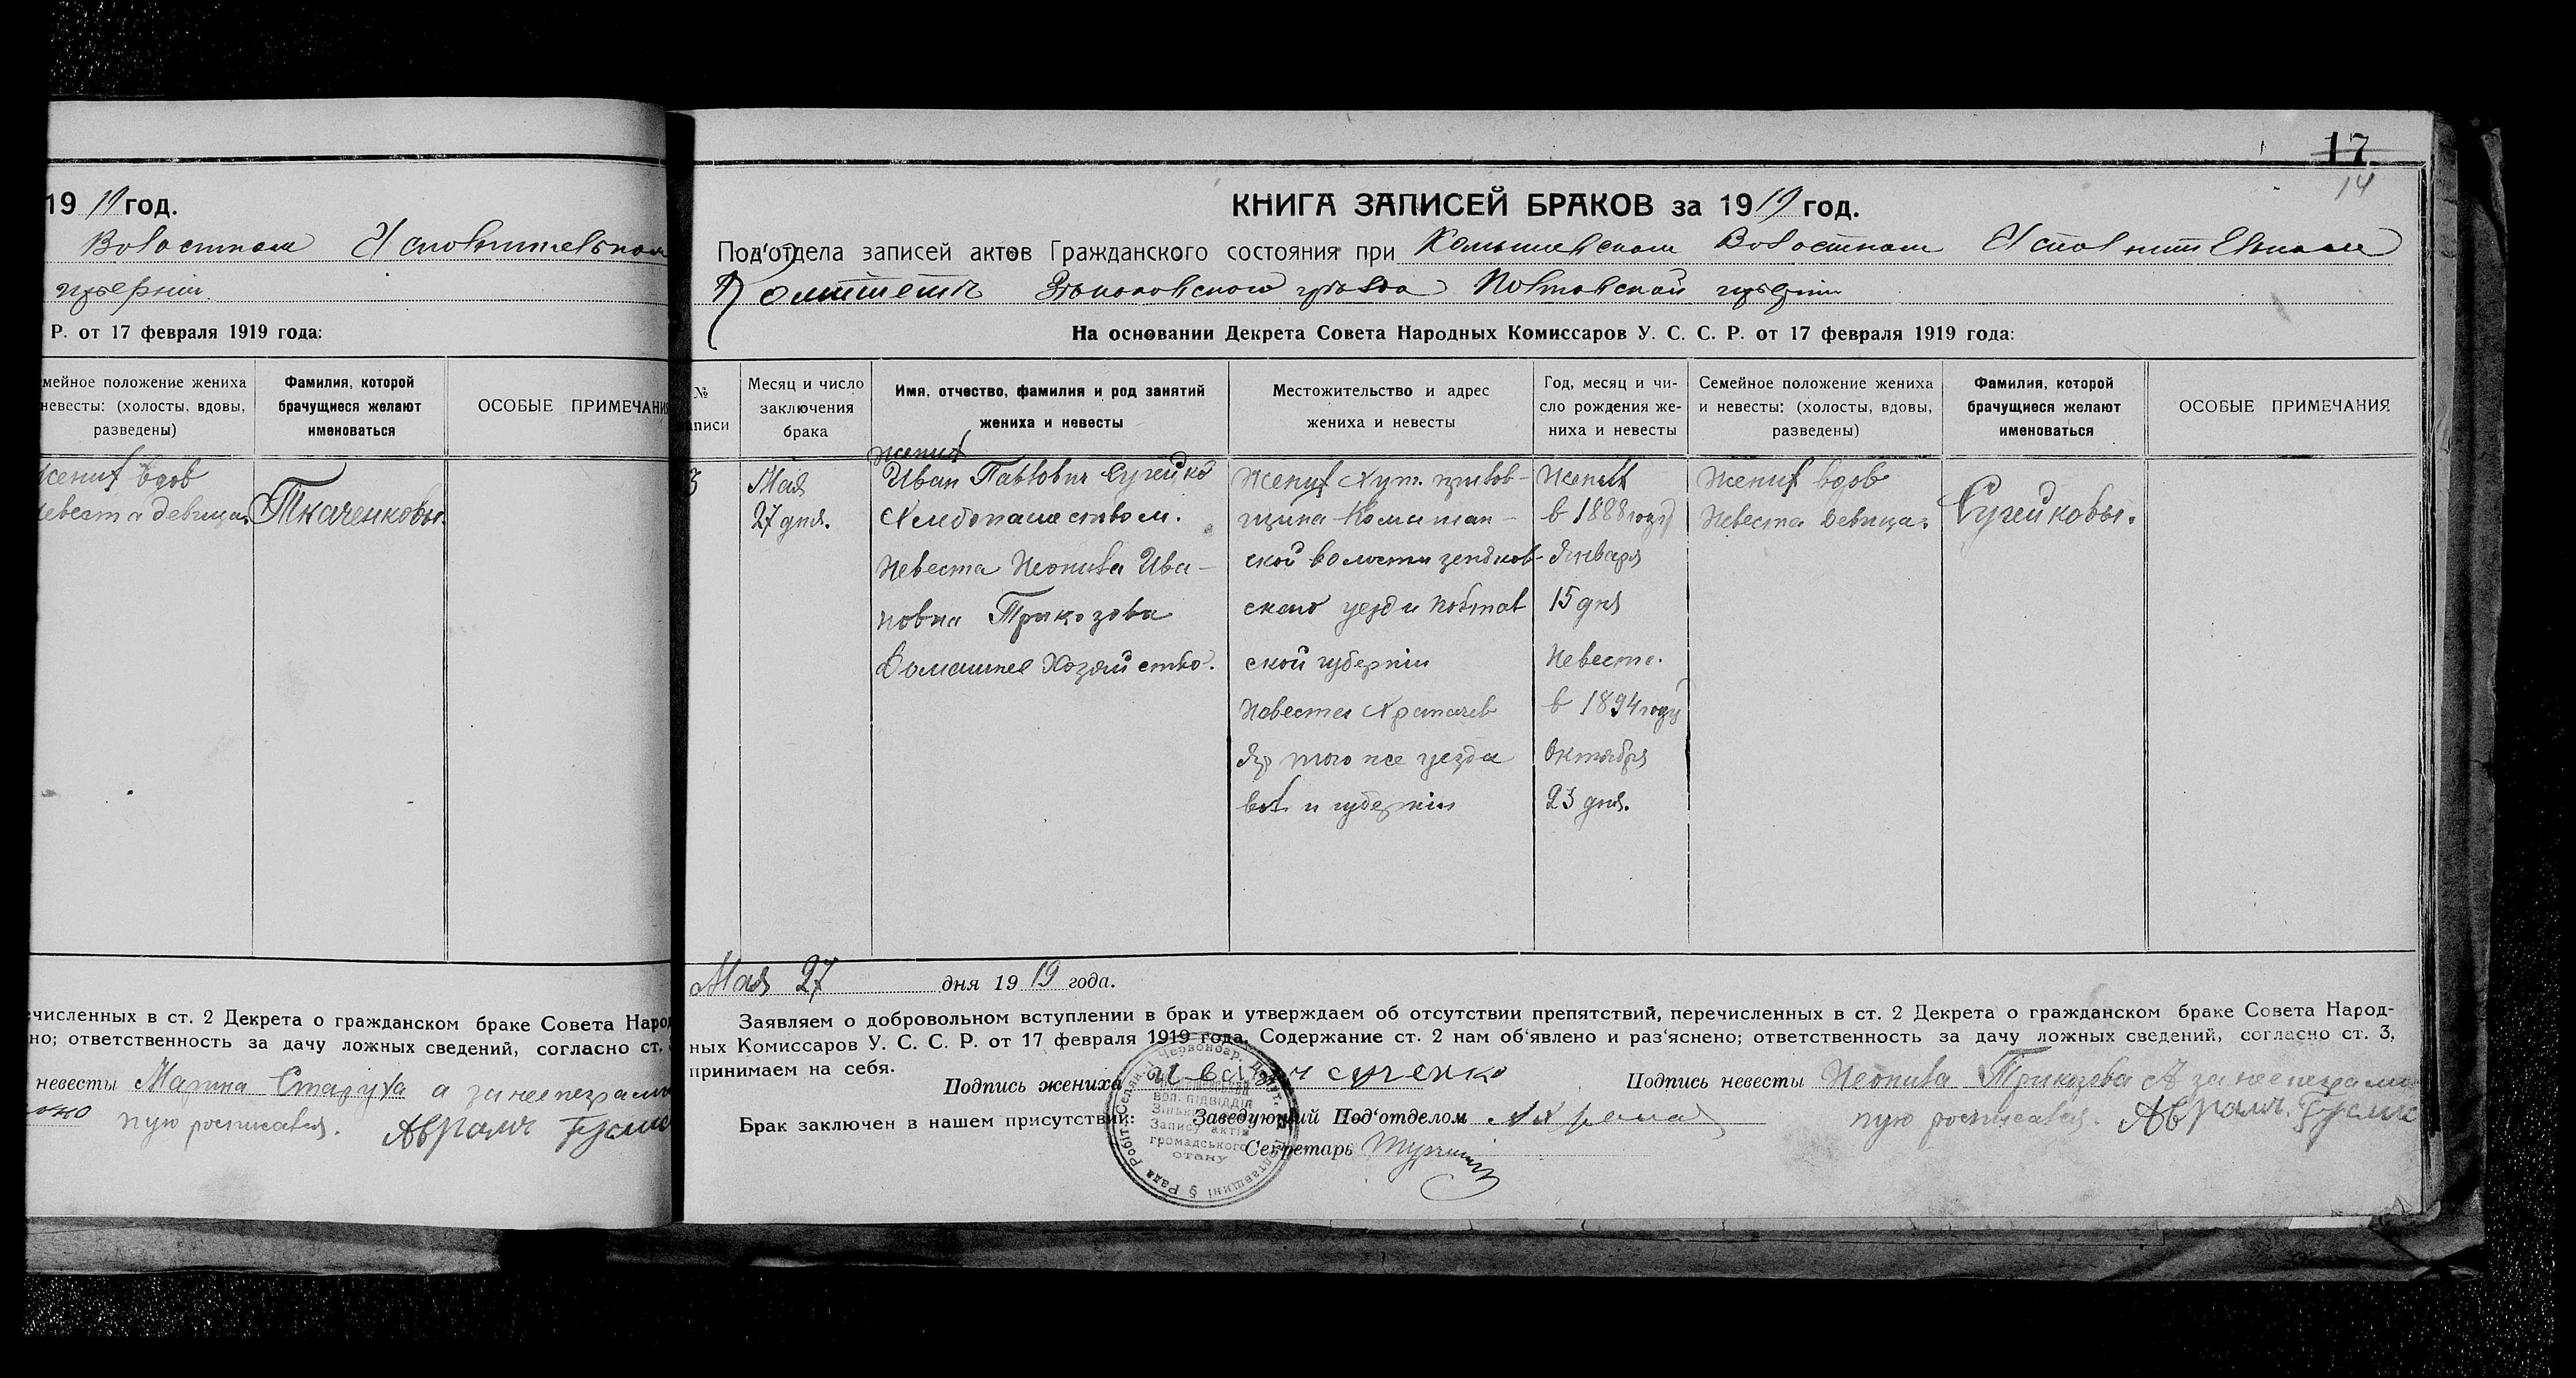 19 19 год.
Волостном Исполнительном
губернии
Р. от 17 февраля 1919 года:
мейное положение жениха
невесты: (холосты, вдовы,
разведены)
Фамилия, которой
брачущиеся желают
именоваться
ОСОБЫЕ ПРИМЕЧАНИ
жених вдов
невеста девица.
Ткаченковы.
численных в ст. 2 Декрета о гражданском браке Совета Народ
но; ответственность за дачу ложных сведений, согласно ст.
невесты Марина Старуха а за нее неграмо
ную росписався. Аврам
17
14
КНИГА ЗАПИСЕЙ БРАКОВ за 1919 год.
Под'отдела записей актов Гражданского состояния при Камышевском Волостном Исполнительном
Комитете Зеньковского уезда Полтавской губернии
На основании Декрета Совета Народных Комиссаров У. С. С. Р. от 17 февраля 1919 года:
№
аписи
Месяц и число
заключения
брака
Имя, отчество, фамилия и род занятий
жениха и невесты
Местожительство и адрес
жениха и невесты
Год, месяц и чи-
сло рождения же-
ниха и невесты
Семейное положение жениха
и невесты: (холосты, вдовы,
разведены)
Фамилия, которой
брачущиеся желают
именоваться
ОСОБЫЕ ПРИМЕЧАНИЯ
3
Мая
27 дня.
жених
Иван Павлович
Хлебопашеством.
Невеста Неонила Ива-
новна Трикозова
Домашнее Хозяйство.
Жених Хут.
щина
ской волости зеньков-
ского уезда Полтав
ской губернии
Невеста
того же уезда
вол и губернии
Жених
в 1888 году
Января
15 дня
Невесте.
в 1894 году
Октября
23 дня.
Жених вдов
Невеста Девица.
Мая 27 дня 1919 года.
Заявляем о добровольном вступлении в брак и утверждаем об отсутствии препятствий, перечисленных в ст. 2 Декрета о гражданском браке Совета Народ-
ных Комиссаров У. С. С. Р. от 17 февраля 1919 года. Содержание ст. 2 нам об'явлено и раз'яснено; ответственность за дачу ложных сведений, согласно ст. 3,
принимаем на себя.
Подпись жениха Иван
Подпись невесты Неонила Трикозова А за нее неграмо
ную росписався. Аврам
Брак заключен в нашем присутствии: Заведующий Под'отделом
Секретарь
вол. підвідділ
Запису актів
громадського
стану